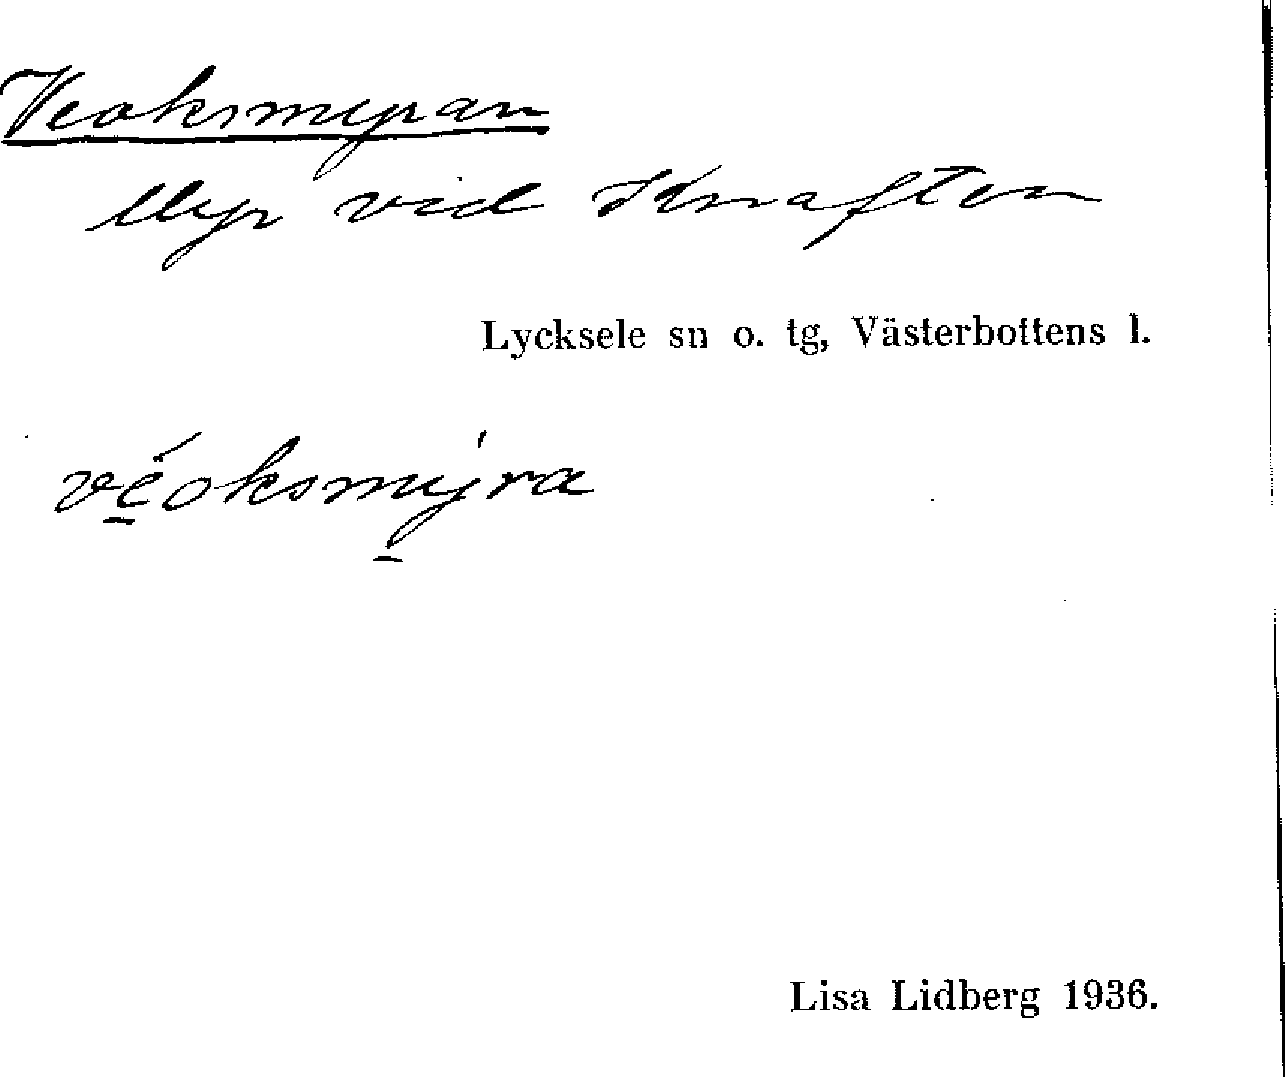 Veoksmyran
Myr vid Knaften
Lycksele sn o. tg, Västerbottens l.
vèoksmýra
Lisa Lidberg 1936.